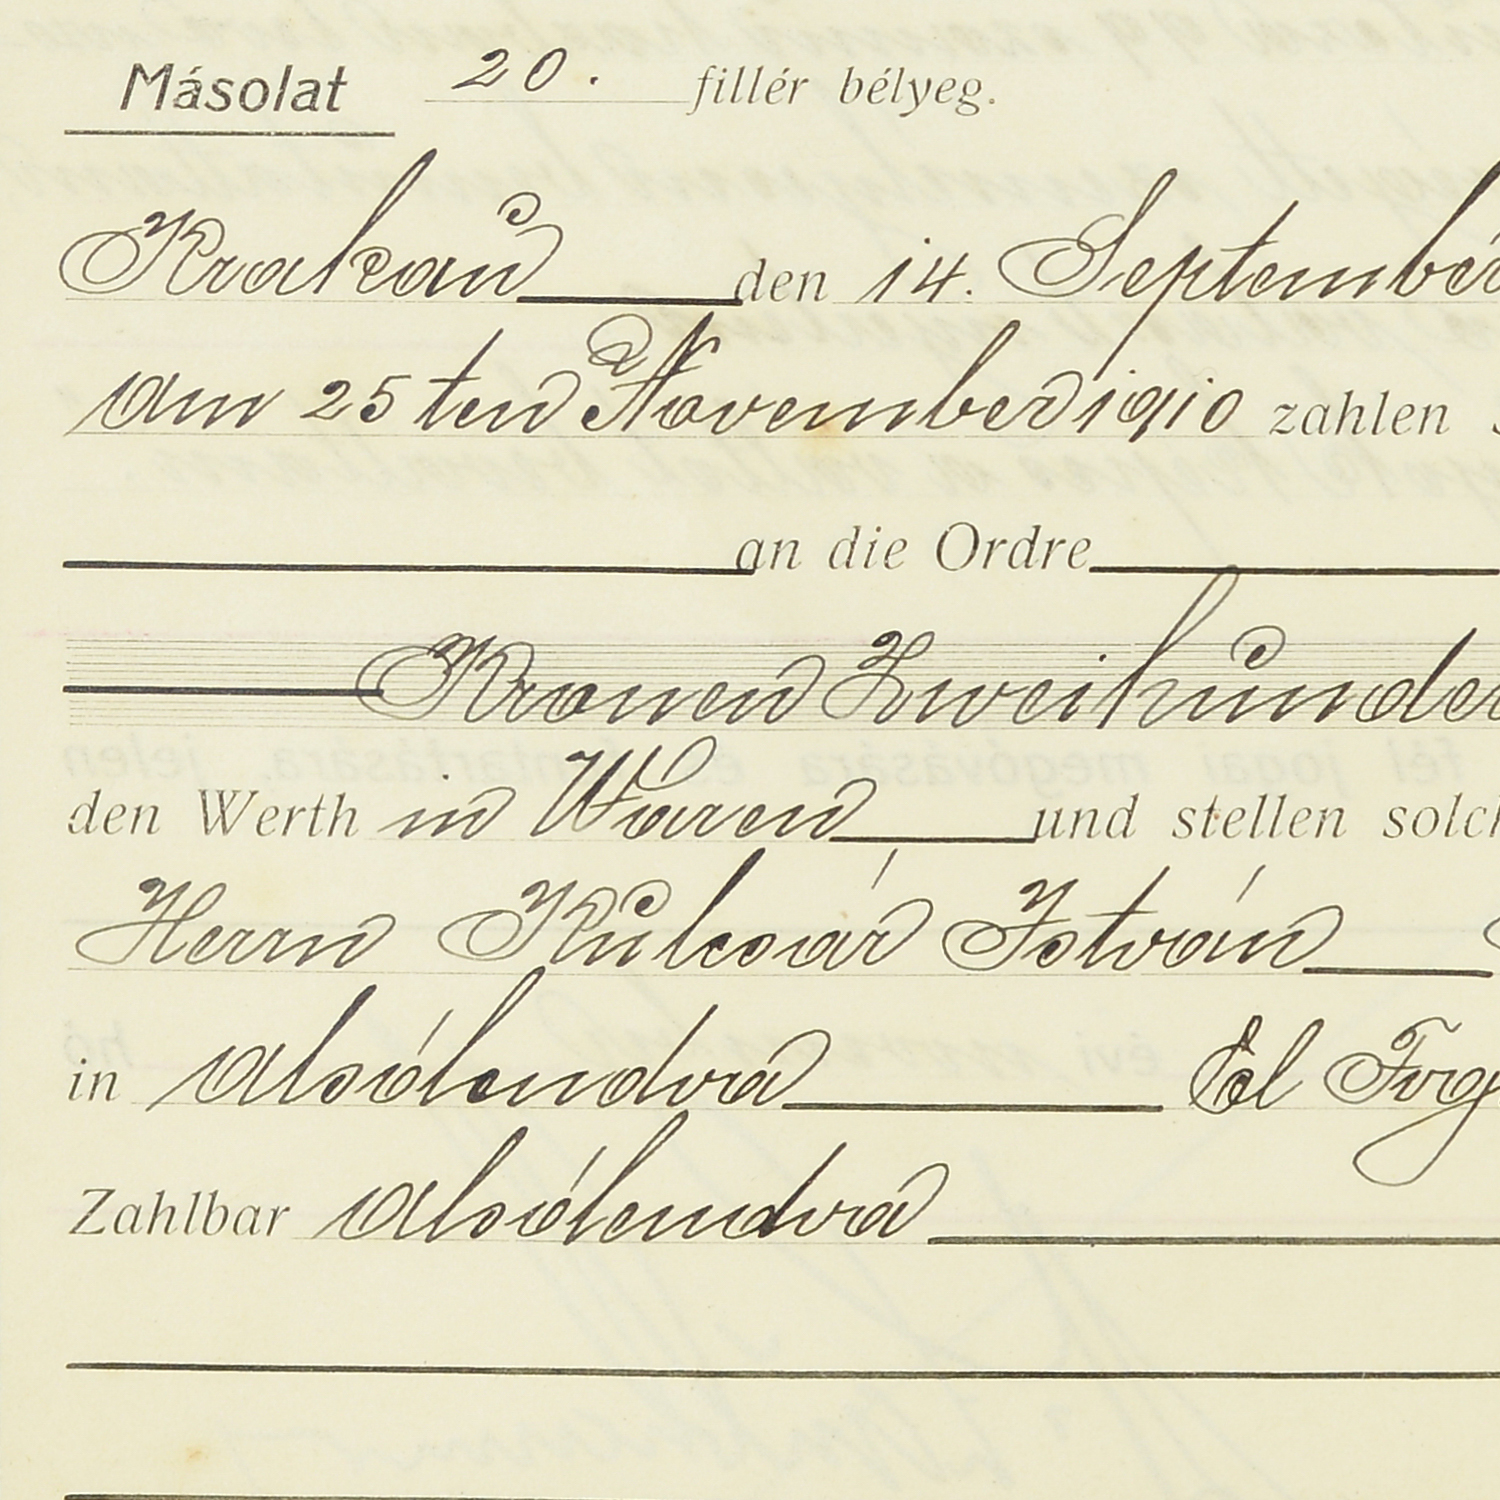 Másolat 20. fillér bélyeg.
Krakau den 14. September
am 25ten November 1910 zahlen
an die Ordre
Kronen Zweihunder
den Werth in Waren und stellen solch
Herrn Kulcsár István
in Alsólendva
Zahlbar Alsólendva